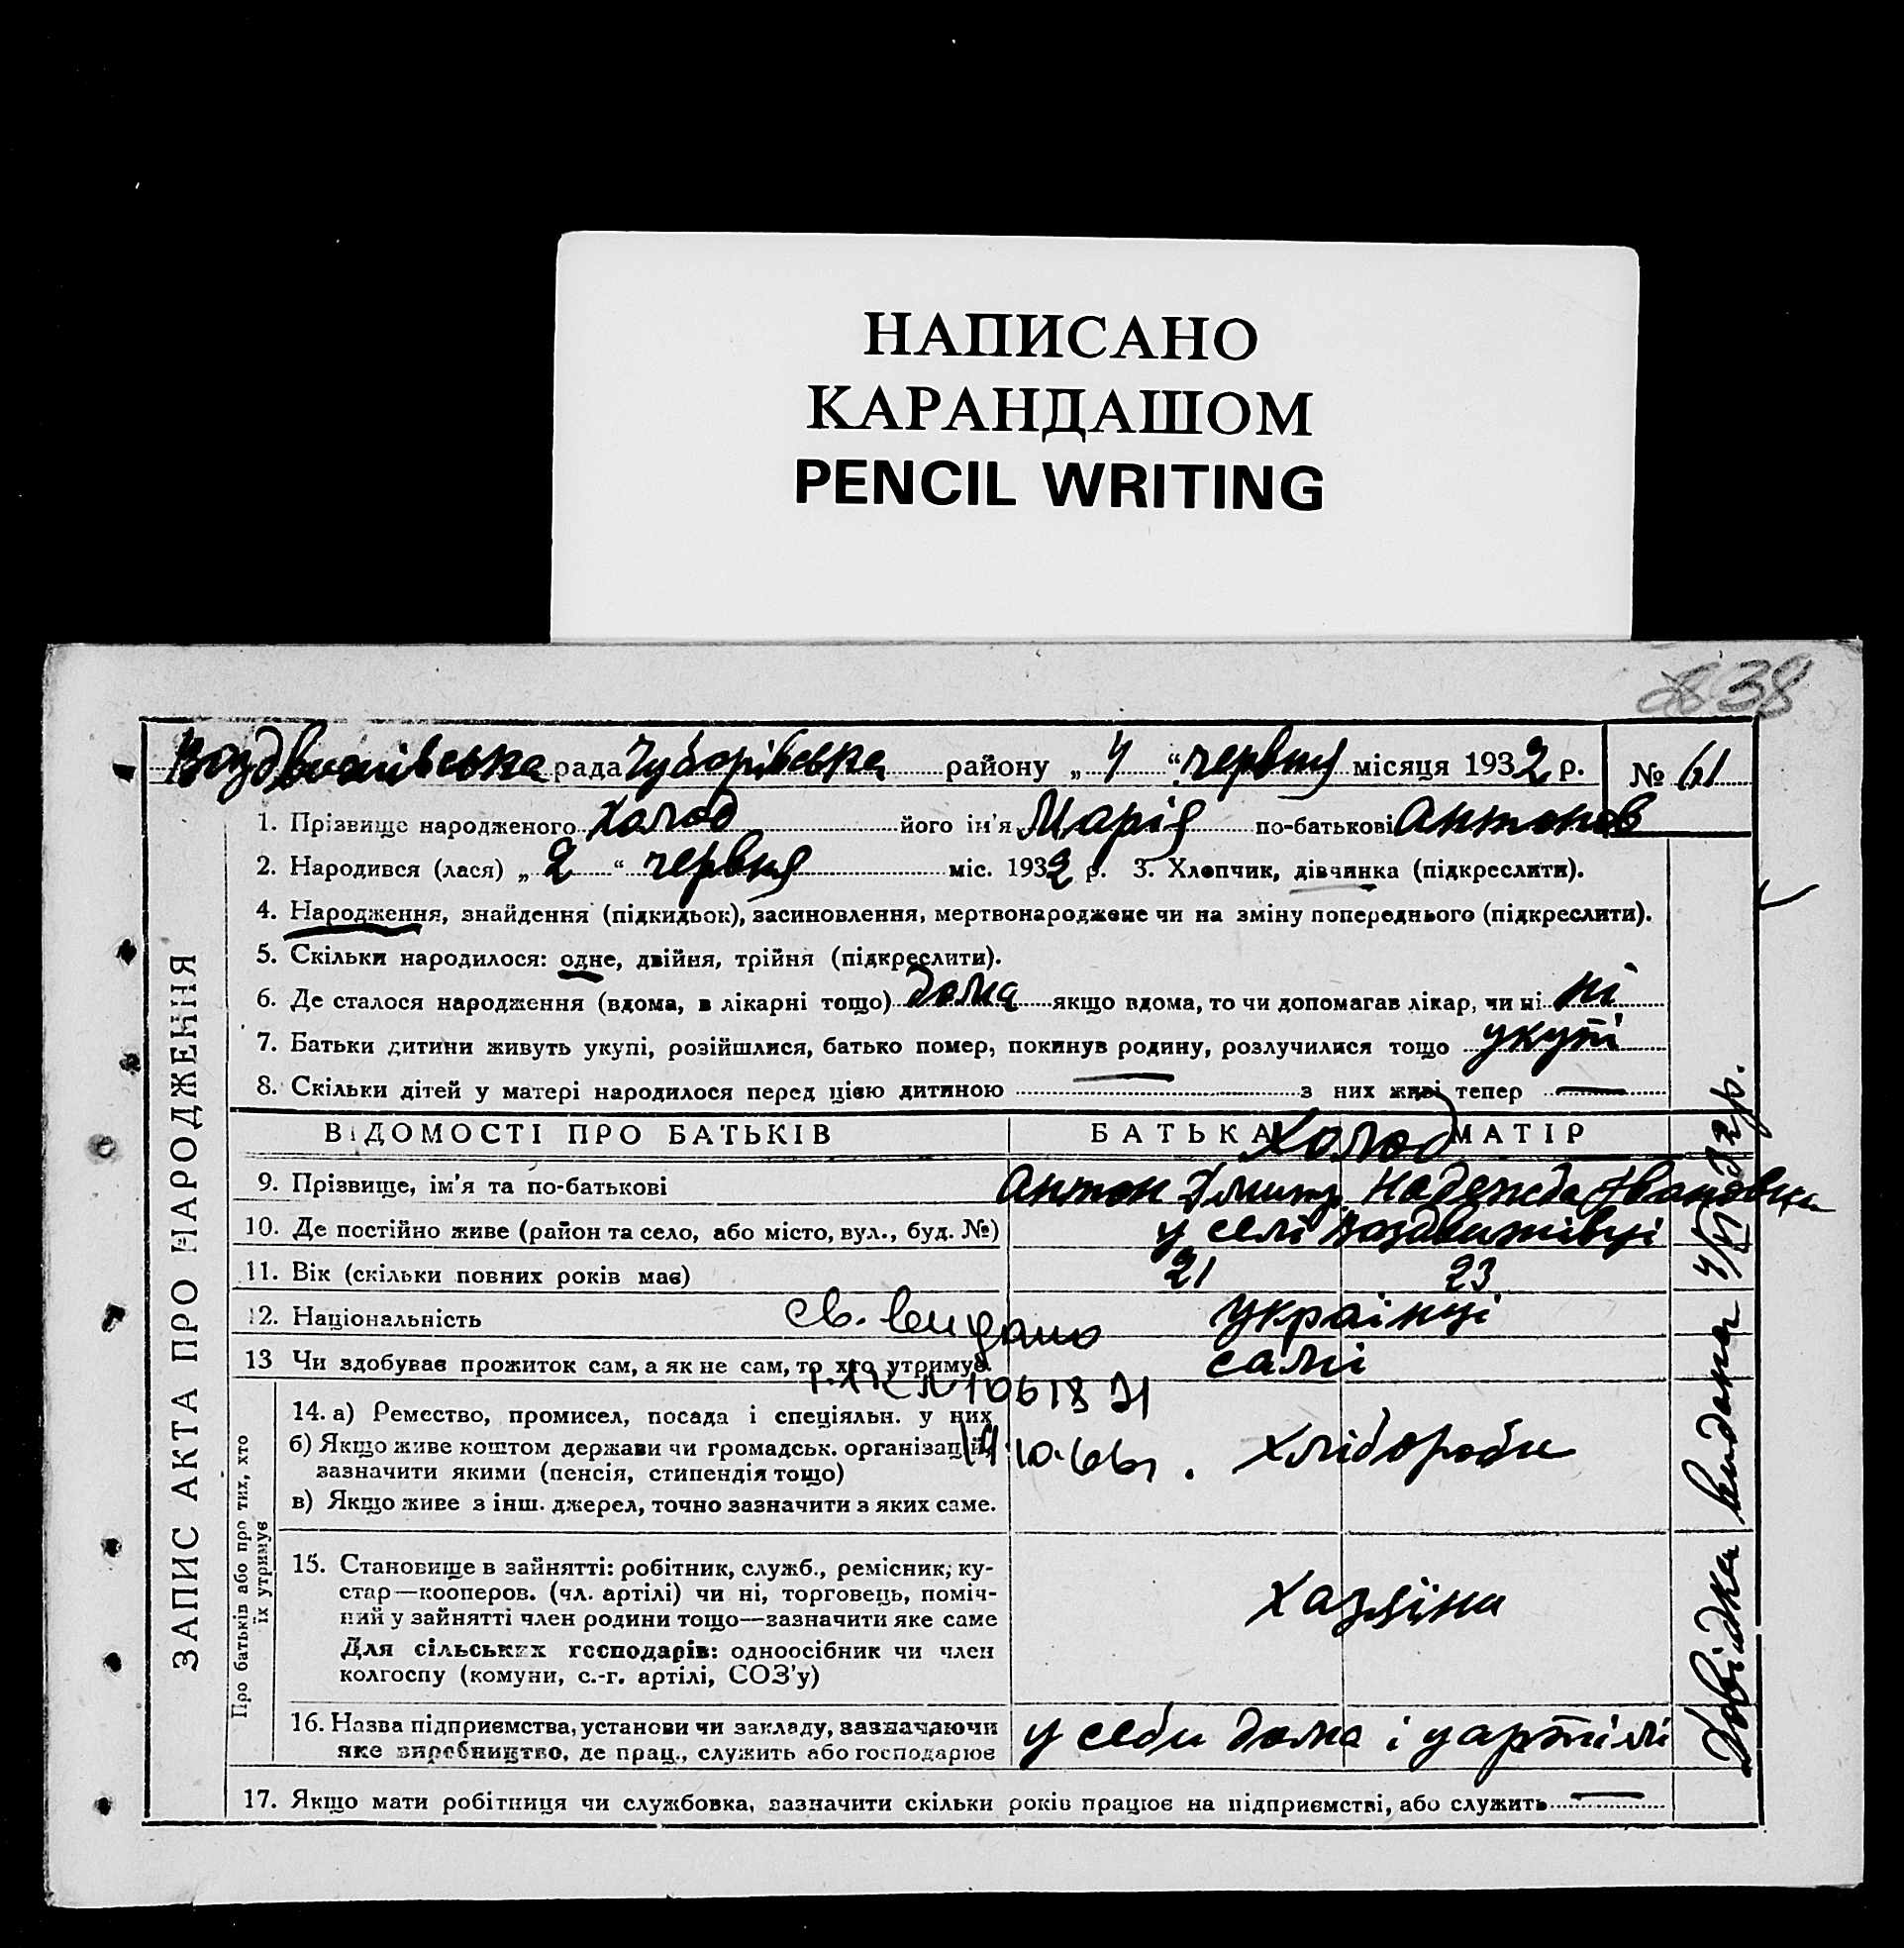 НАПИСАНО
КАРАНДАШОМ
PENCIL WRITING
838
Воздвижівська рада Чубарівська району „4“ червня місяця 1932 р. № 61
ЗАПИС АКТА ПРО НАРОДЖЕННЯ
1. Прізвище народженого Холод його ім'я Марія по-батькові Антонов
2. Народився (лася) „2“ червня міс. 1932 р. 3. Хлопчик, дівчинка (підкреслити).
4. Народження, знайдення (підкидьок), засиновлення, мертвонароджене чи на зміну попереднього (підкреслити).
5. Скільки народилося: одне, двійня, трійня (підкреслити).
6. Де сталося народження (вдома, в лікарні тощо) дома якщо вдома, то чи допомагав лікар, чи ні ні
7. Батьки дитини живуть укупі, розійшлися, батько помер, покинув родину, розлучилися тощо укупі
8. Скільки дітей у матері народилося перед цією дитиною — з них живі тепер —
ВІДОМОСТІ ПРО БАТЬКІВ БАТЬКА МАТІР
Холод
9. Прізвище, ім'я та по-батькові Антон Дмитр. Надежда Івановна
10. Де постійно живе (район та село, або місто, вул., буд. №) у селі Воздвижівці
11. Вік (скільки повних років має) 21 23
12. Національність українці
св. видано
13 Чи здобуває прожиток сам, а як не сам, то хто утримує. самі
№ 10618 21
Про батьків або про тих, хто їх утримує
14. а) Ремество, промисел, посада і спеціяльн. у них
б) Якщо живе коштом держави чи громадськ. організацій,
зазначити якими (пенсія, стипендія тощо)
хлібороби
14.10.66г.
в) Якщо живе з інш. джерел, точно зазначити з яких саме.
15. Становище в зайнятті: робітник, служб., ремісник, ку-
стар—кооперов. (чл. артілі) чи ні, торговець, поміч-
ний у зайнятті член родини тощо—зазначити яке саме
Для сільських господарів: одноосібник чи член
колгоспу (комуни, с.-г. артілі, СОЗ'у)
хазяїни
16. Назва підприємства, установи чи закладу, зазначаючи
яке виробництво, де прац., служить або господарює
у себи дома і у артілі
17. Якщо мати робітниця чи службовка, зазначити скільки років працює на підприємстві, або служить —
Довідка видана 4/VI 32 р.